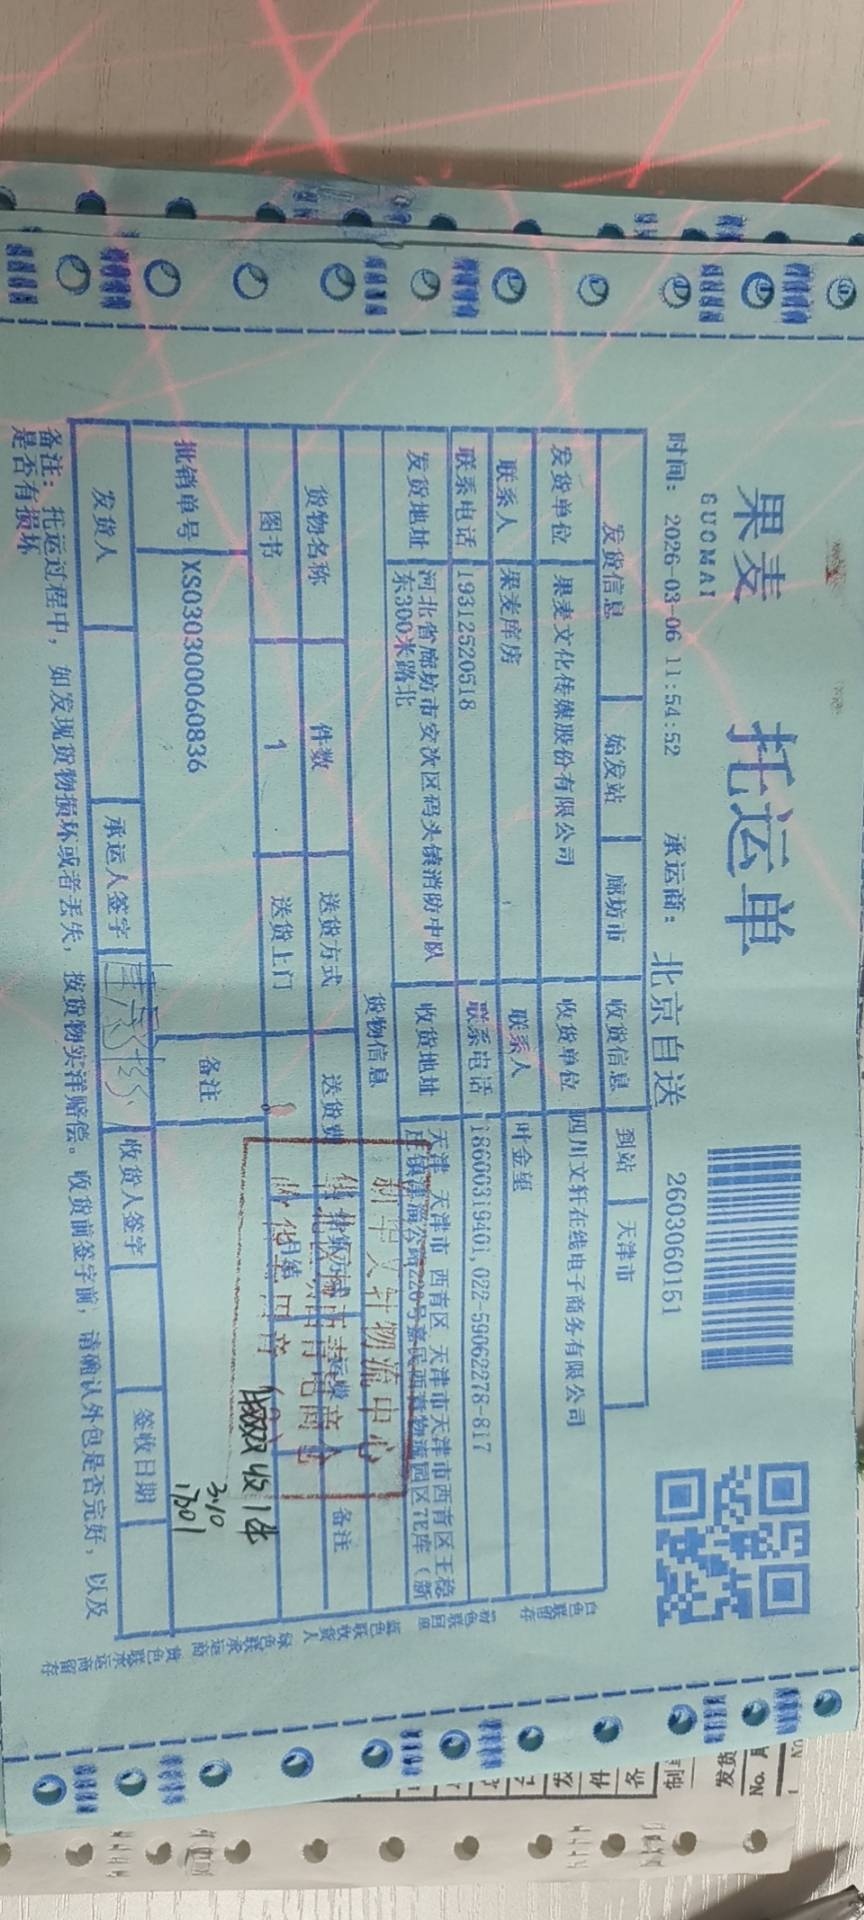 果麦
GUOMAI
托运单
时间: 2026-03-06 11:54:52 承运商: 北京自送 2603060151
发货信息 始发站 廊坊市 收货信息 到站 天津市
发货单位 果麦文化传媒股份有限公司 收货单位 四川文轩在线电子商务有限公司
联系人 果麦库房 联系人 叶金望
联系电话 19312520518 联系电话 18600319401,022-59062278-817
发货地址 河北省廊坊市安次区码头镇消防中队东300米路北 收货地址 天津 天津市 西青区 天津市天津市西青区王稳
货物信息
货物名称 件数 送货方式 送货费 备注
图书 1 送货上门 月结
批销单号 XS030300060836 备注
新华文轩物流中心
收1件
3.10
发货人 承运人签字 收货人签字 签收日期
备注: 托运过程中, 如发现货物损坏或者丢失, 按货物实洋赔偿。收货前签字前, 请确认外包是否完好, 以及
是否有损坏
白色联留存
粉色联回单
蓝色联收货人
绿色联承运商
黄色联承运商留存
发货
No.